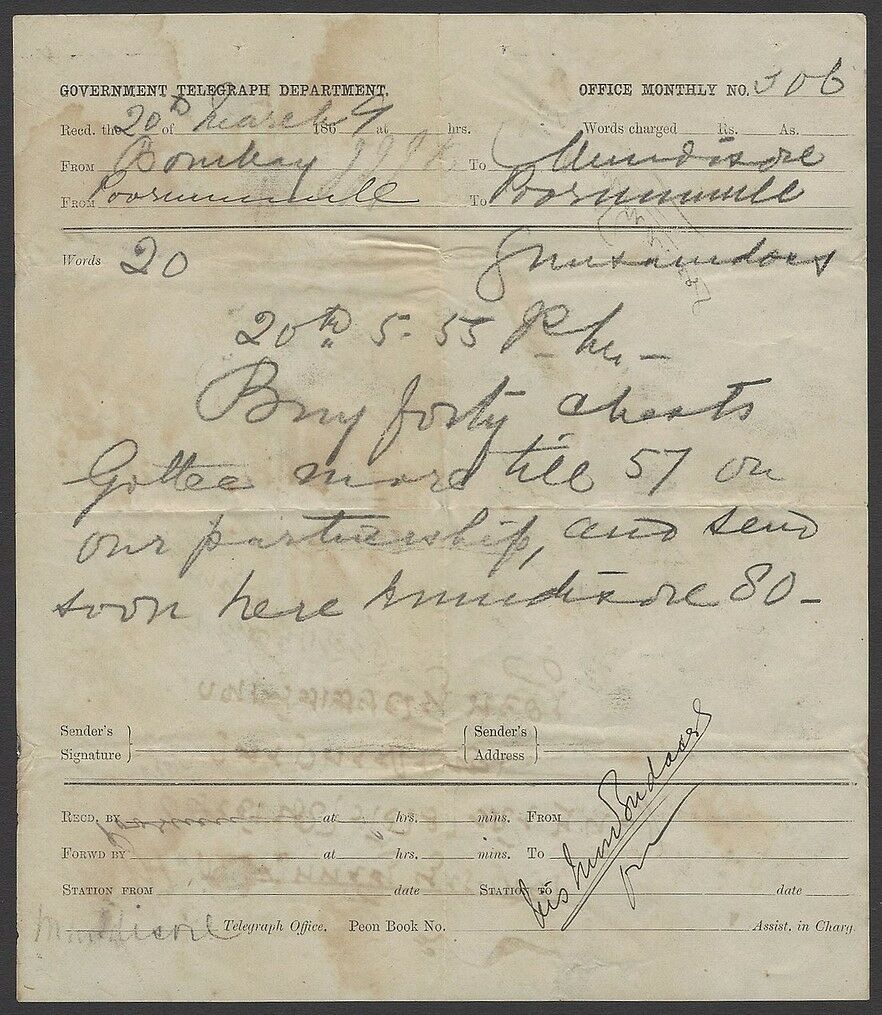 GOVERNMENT TELEGRAPH DEPARTMENT. OFFICE MONTHLY NO. 306
Recd. the 20th of March 1869 at hrs. Words charged Rs. As.
FROM Bombay To Mundisore
FROM Poorunmull To Poorunmull
Words 20
20th 5-55 P.m.—
Buy forty chests
Gottee more till 57 on
our partnership, and send
soon here Mundisore 80-
Sender's Signature } { Sender's Address }
RECD. BY at hrs. mins. FROM
FORWD BY at hrs. mins. To
STATION FROM date STATION TO date
Mundisore Telegraph Office. Peon Book No. Assist. in Charg